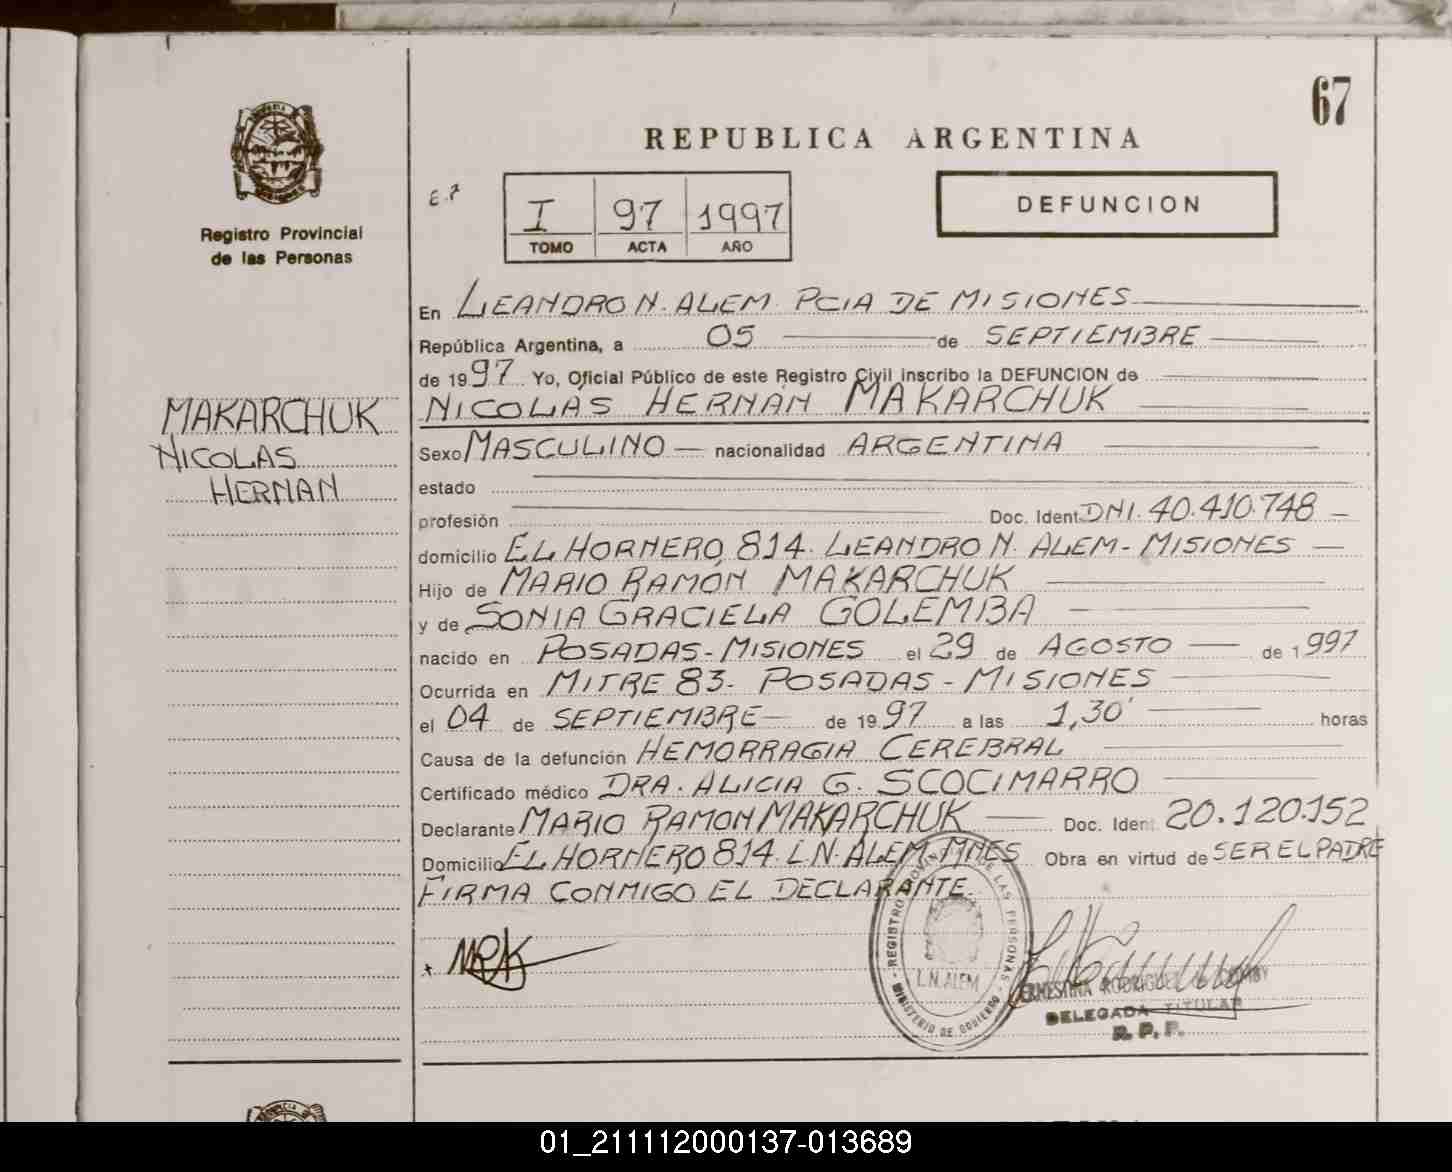 67
REPUBLICA ARGENTINA
DEFUNCION
I 97 1997
TOMO ACTA AÑO
Registro Provincial
de las Personas
MAKARCHUK
NICOLAS
HERNAN
En LEANDRO N. ALEM PCIA DE MISIONES
República Argentina, a 05 de SEPTIEMBRE
de 1997 Yo, Oficial Público de este Registro Civil inscribo la DEFUNCION de
NICOLÁS HERNÁN MAKARCHUK
Sexo MASCULINO nacionalidad ARGENTINA
estado
profesión Doc. Ident. DNI. 40.410.748
domicilio EL HORNERO 814. LEANDRO N. ALEM - MISIONES
Hijo de MARIO RAMÓN MAKARCHUK
y de SONIA GRACIELA GOLEMBA
nacido en POSADAS - MISIONES el 29 de AGOSTO de 1997
Ocurrida en MITRE 83- POSADAS - MISIONES
el 04 de SEPTIEMBRE de 1997 a las 1,30' horas
Causa de la defunción HEMORRAGIA CEREBRAL
Certificado médico DRA. ALICIA G. SCOCIMARRO
Declarante MARIO RAMON MAKARCHUK Doc. Ident. 20.120.152
Domicilio EL HORNERO 814. L.N. ALEM. MNES Obra en virtud de SER EL PADRE
FIRMA CONMIGO EL DECLARANTE.
REGISTRO PROVINCIAL DE LAS PERSONAS
L.N. ALEM
MINISTERIO DE GOBIERNO
DELEGADA TITULAR
R. P. P.
01_211112000137-013689